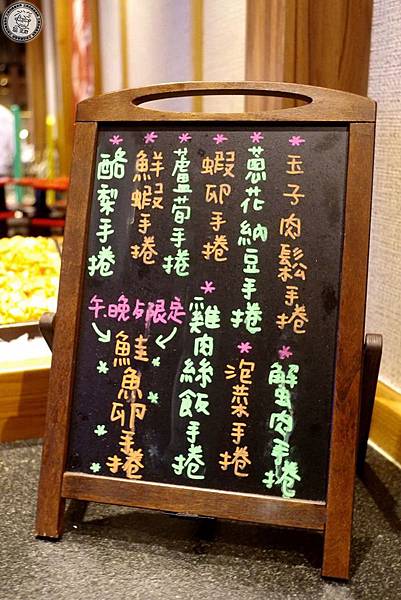 玉子肉鬆手捲
蔥花納豆手捲
蝦卵手捲
蘆筍手捲
鮮蝦手捲
酪梨手捲
蟹肉手捲
泡菜手捲
雞肉絲飯手捲
午.晚點限定
鮭魚卵手捲